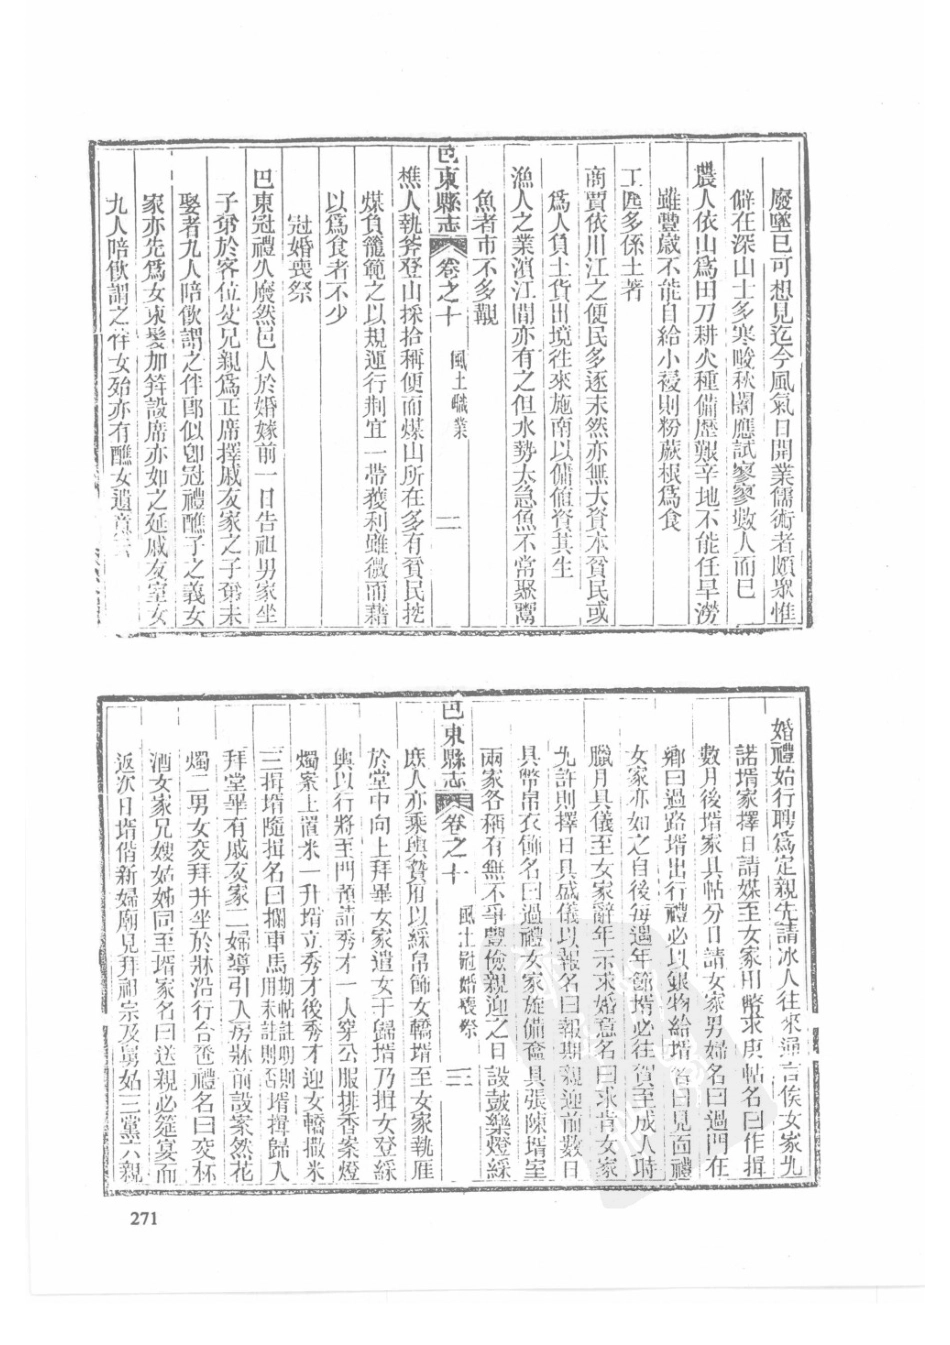 廢墜已可想見迄今風氣日開業儒術者頗衆惟
僻在深山士多寒畯秋闈應試寥寥數人而已
農人依山爲田刀耕火種備歷艱辛地不能任旱澇
雖豐歲不能自給小祲則粉蕨根爲食
工匠多係土著
商賈依川江之便民多逐末然亦無大資本貧民或
爲人負土貨出境往來施南以傭値資其生
漁人之業濵江間亦有之但水勢太急魚不常聚鬻
魚者市不多覯
巴東縣志
卷之十
風土職業
二
樵人執斧登山採拾稱便而煤山所在多有貧民挖
煤負籠範之以規運行荆宜一帶獲利雖微而藉
以爲食者不少
冠婚喪祭
巴東冠禮久廢然邑人於婚嫁前一日告祖男家坐
子弟於客位父兄親爲正席擇戚友家之子弟未
娶者九人陪飲謂之伴郎似卽冠禮醮子之義女
家亦先爲女束髮加笄設席亦如之延戚友室女
九人陪飲謂之伴女殆亦有醮女遺意云
婚禮始行聘爲定親先請冰人往來通言俟女家允
諾壻家擇日請媒至女家用幣求庚帖名曰作揖
數月後壻家具帖分日請女家男婦名曰過門在
鄉曰過路壻出行禮必以銀物給壻名曰見面禮
女家亦如之自後每遇年節壻必往賀至成人時
臘月具儀至女家辭年示求婚意名曰求肯女家
允許則擇日具盛儀以報名曰報期親迎前數日
具幣帛衣飾名曰過禮女家旋備奩具張陳壻室
兩家各稱有無不爭豐儉親迎之日設鼓樂燈綵
巴東縣志
卷之十
風土冠婚喪祭
三
庶人亦乘輿贄用以綵帛飾女轎壻至女家執雁
於堂中向上拜畢女家遣女于歸壻乃揖女登綵
輿以行將至門預請秀才一人穿公服排香案燈
燭案上置米一升壻立秀才後秀才迎女轎撒米
三揖壻隨揖名曰攔車馬期帖註明則用未註則否壻揖歸入
拜堂畢有戚友家二婦導引入房牀前設案然花
燭二男女交拜并坐於牀沿行合卺禮名曰交杯
酒女家兄嫂姑姊同至壻家名曰送親必筵宴而
返次日壻偕新婦廟見拜祖宗及舅姑三黨六親
271